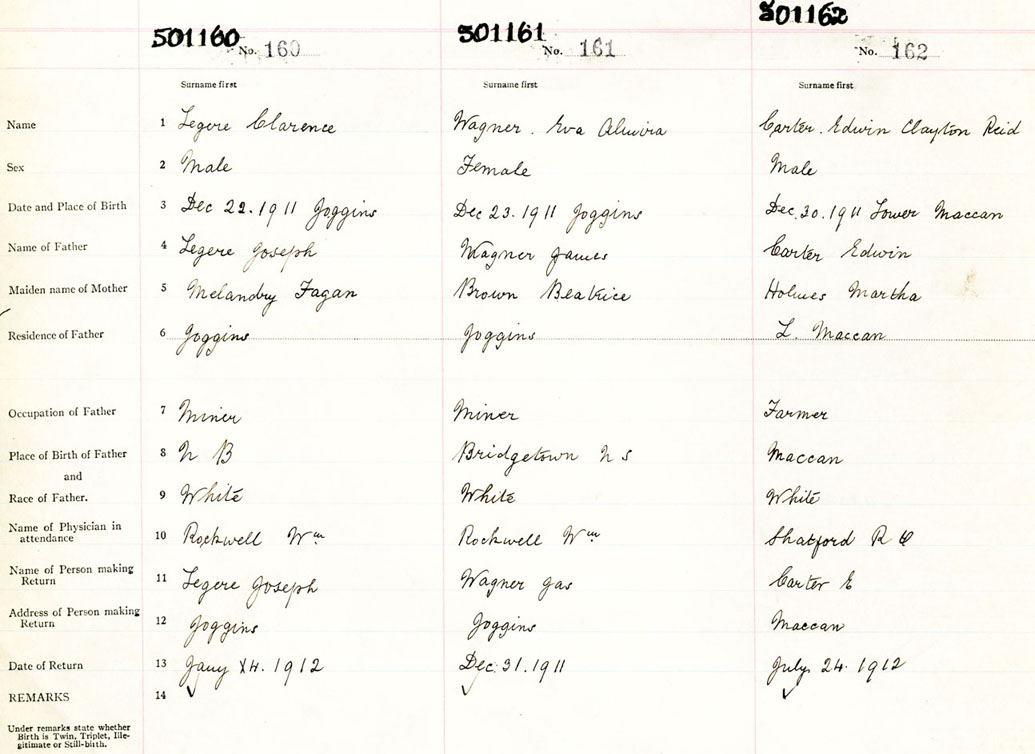 501160 501161 501162
No. 160 No. 161 No. 162
Surname first Surname first Surname first
Name 1 Legere Clarence Wagner. Eva Almira Carter. Edwin Clayton Reid
Sex 2 Male Female Male
Date and Place of Birth 3 Dec 22. 1911 Joggins Dec 23. 1911 Joggins Dec. 30. 1911 Lower Maccan
Name of Father 4 Legere Joseph Wagner James Carter Edwin
Maiden name of Mother 5 Melandry Fagan Brown Beatrice Holmes Martha
Residence of Father 6 Joggins Joggins L. Maccan
Occupation of Father 7 Miner Miner Farmer
Place of Birth of Father 8 N B Bridgetown N S Maccan
and
Race of Father. 9 White White White
Name of Physician in
attendance 10 Rockwell Wm Rockwell Wm Shatford R
Name of Person making
Return 11 Legere Joseph Wagner Jas Carter E
Address of Person making
Return 12 Joggins Joggins Maccan
Date of Return 13 Jany 1912 Dec. 31. 1911 July 24. 1912
REMARKS 14
Under remarks state whether
Birth is Twin, Triplet, Ille-
gitimate or Still-birth.